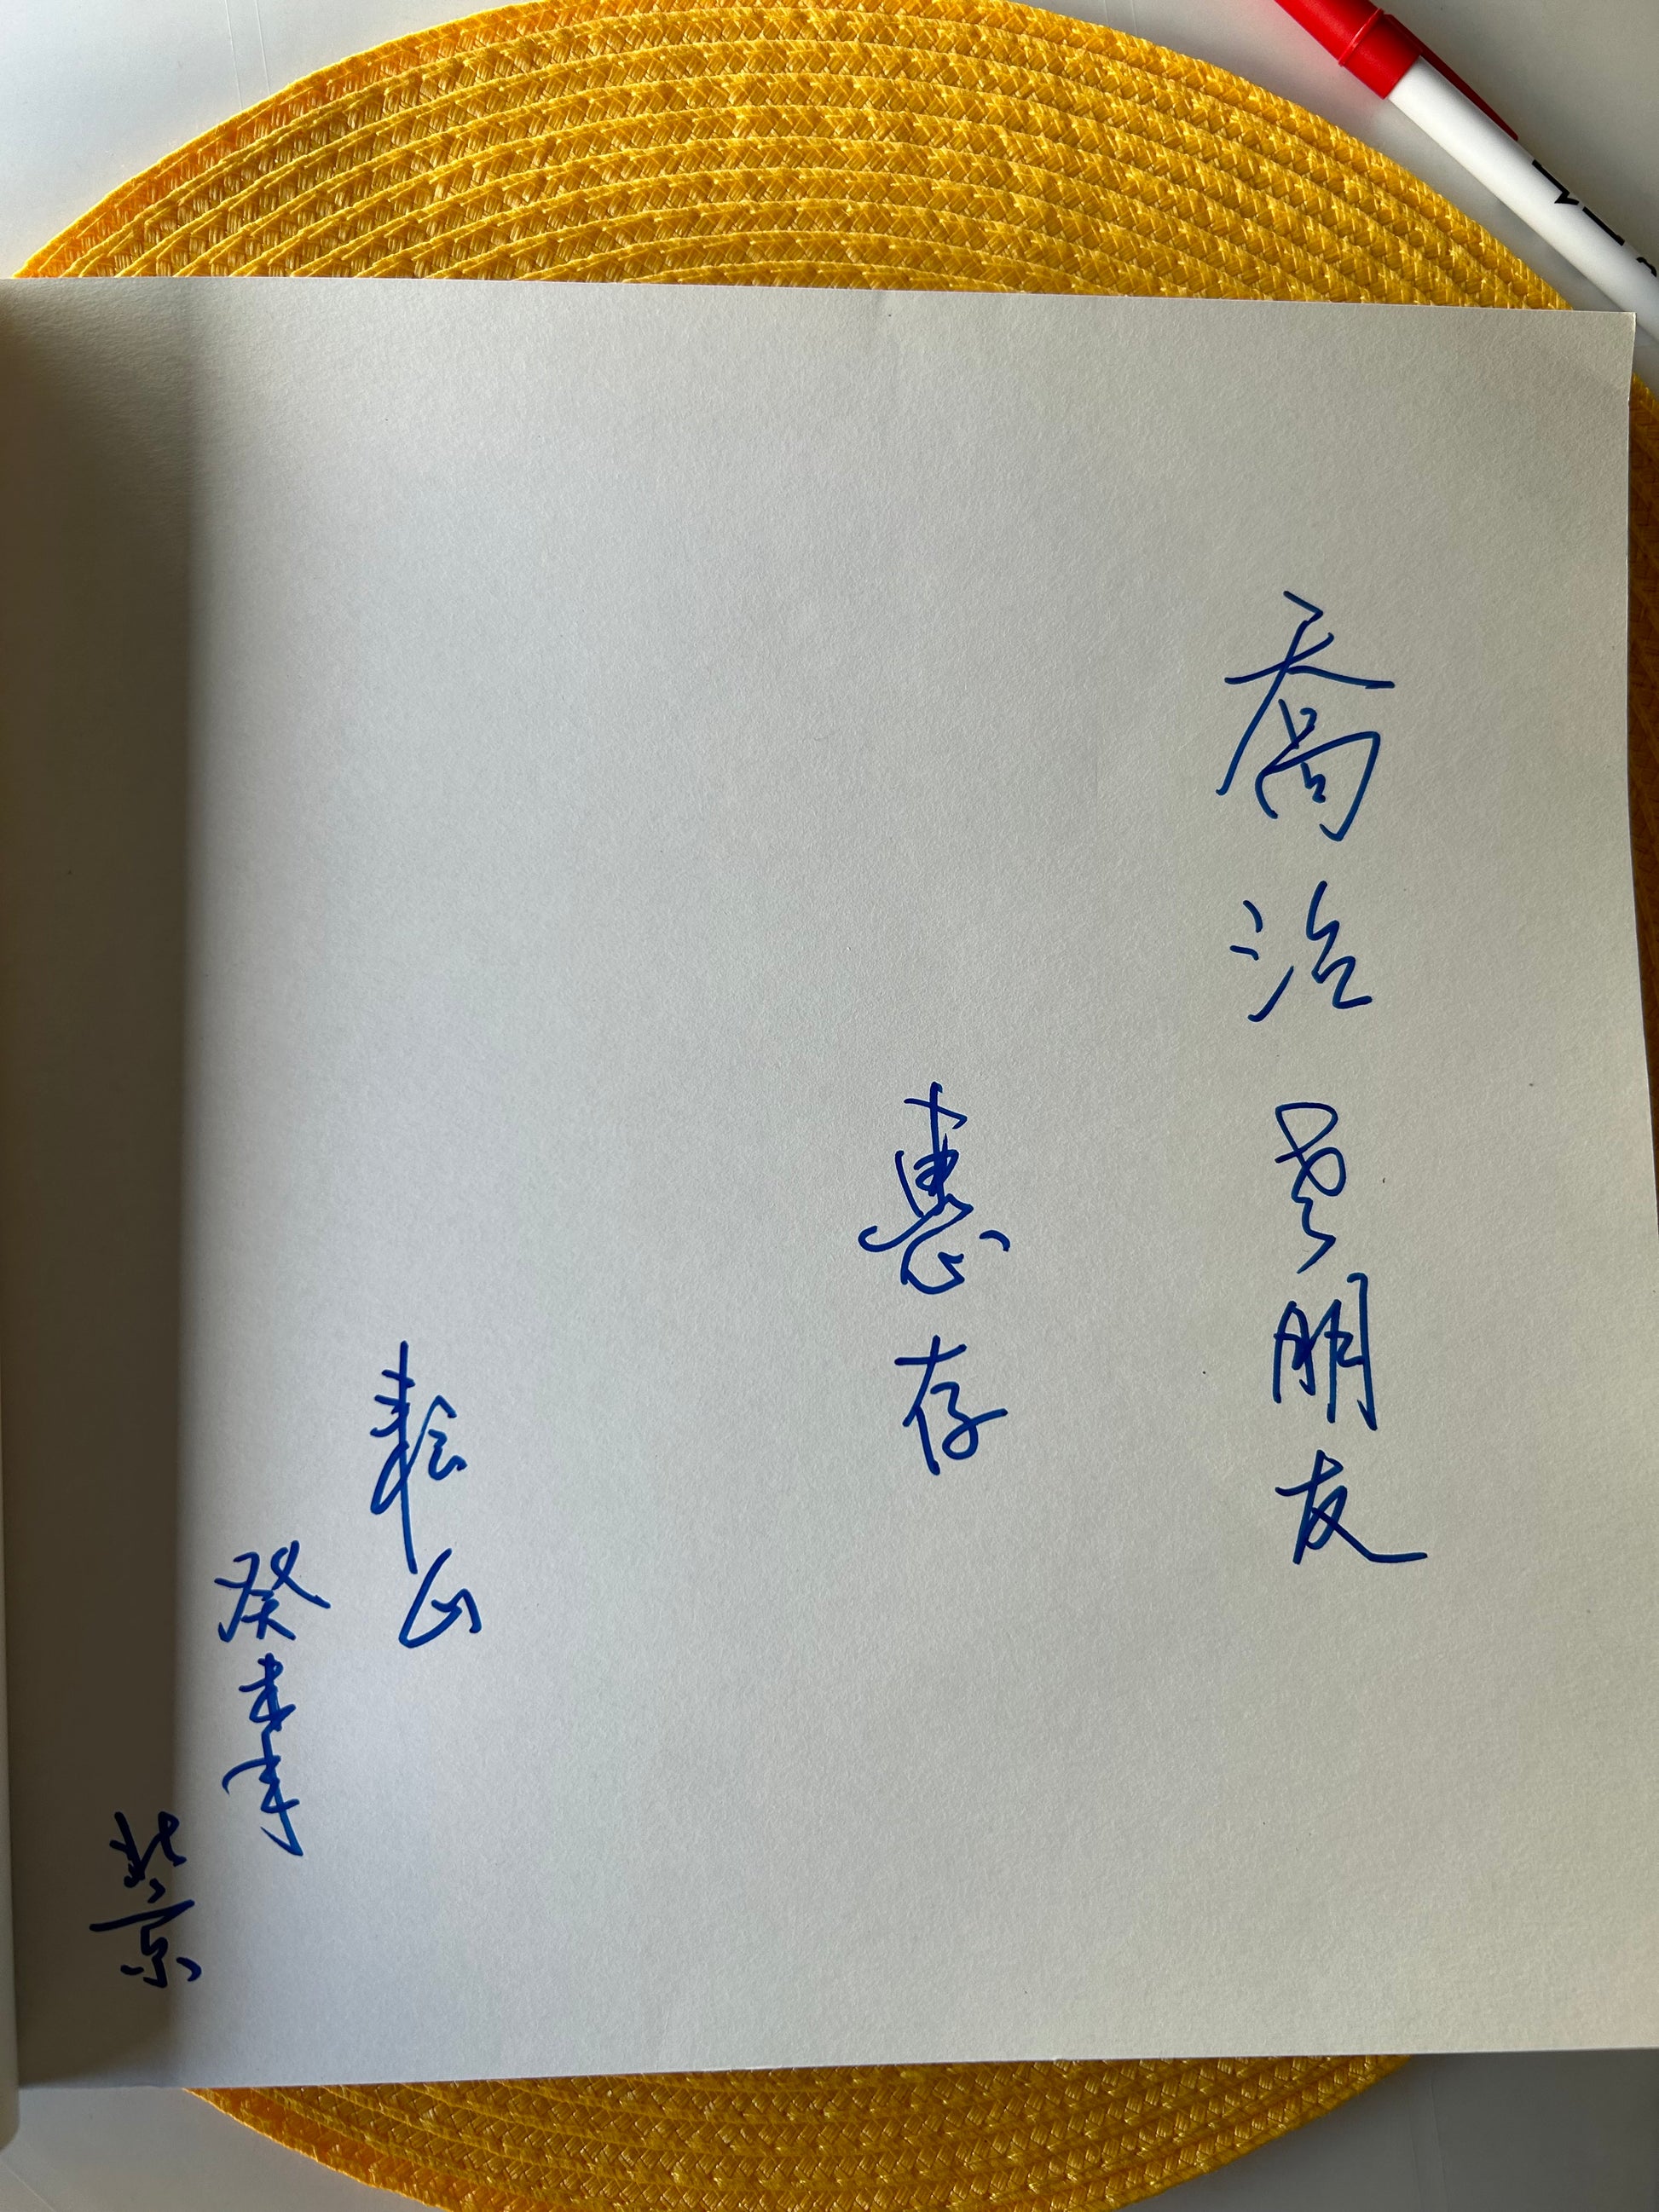 喬治老朋友
惠存
耘山
癸未年
北京